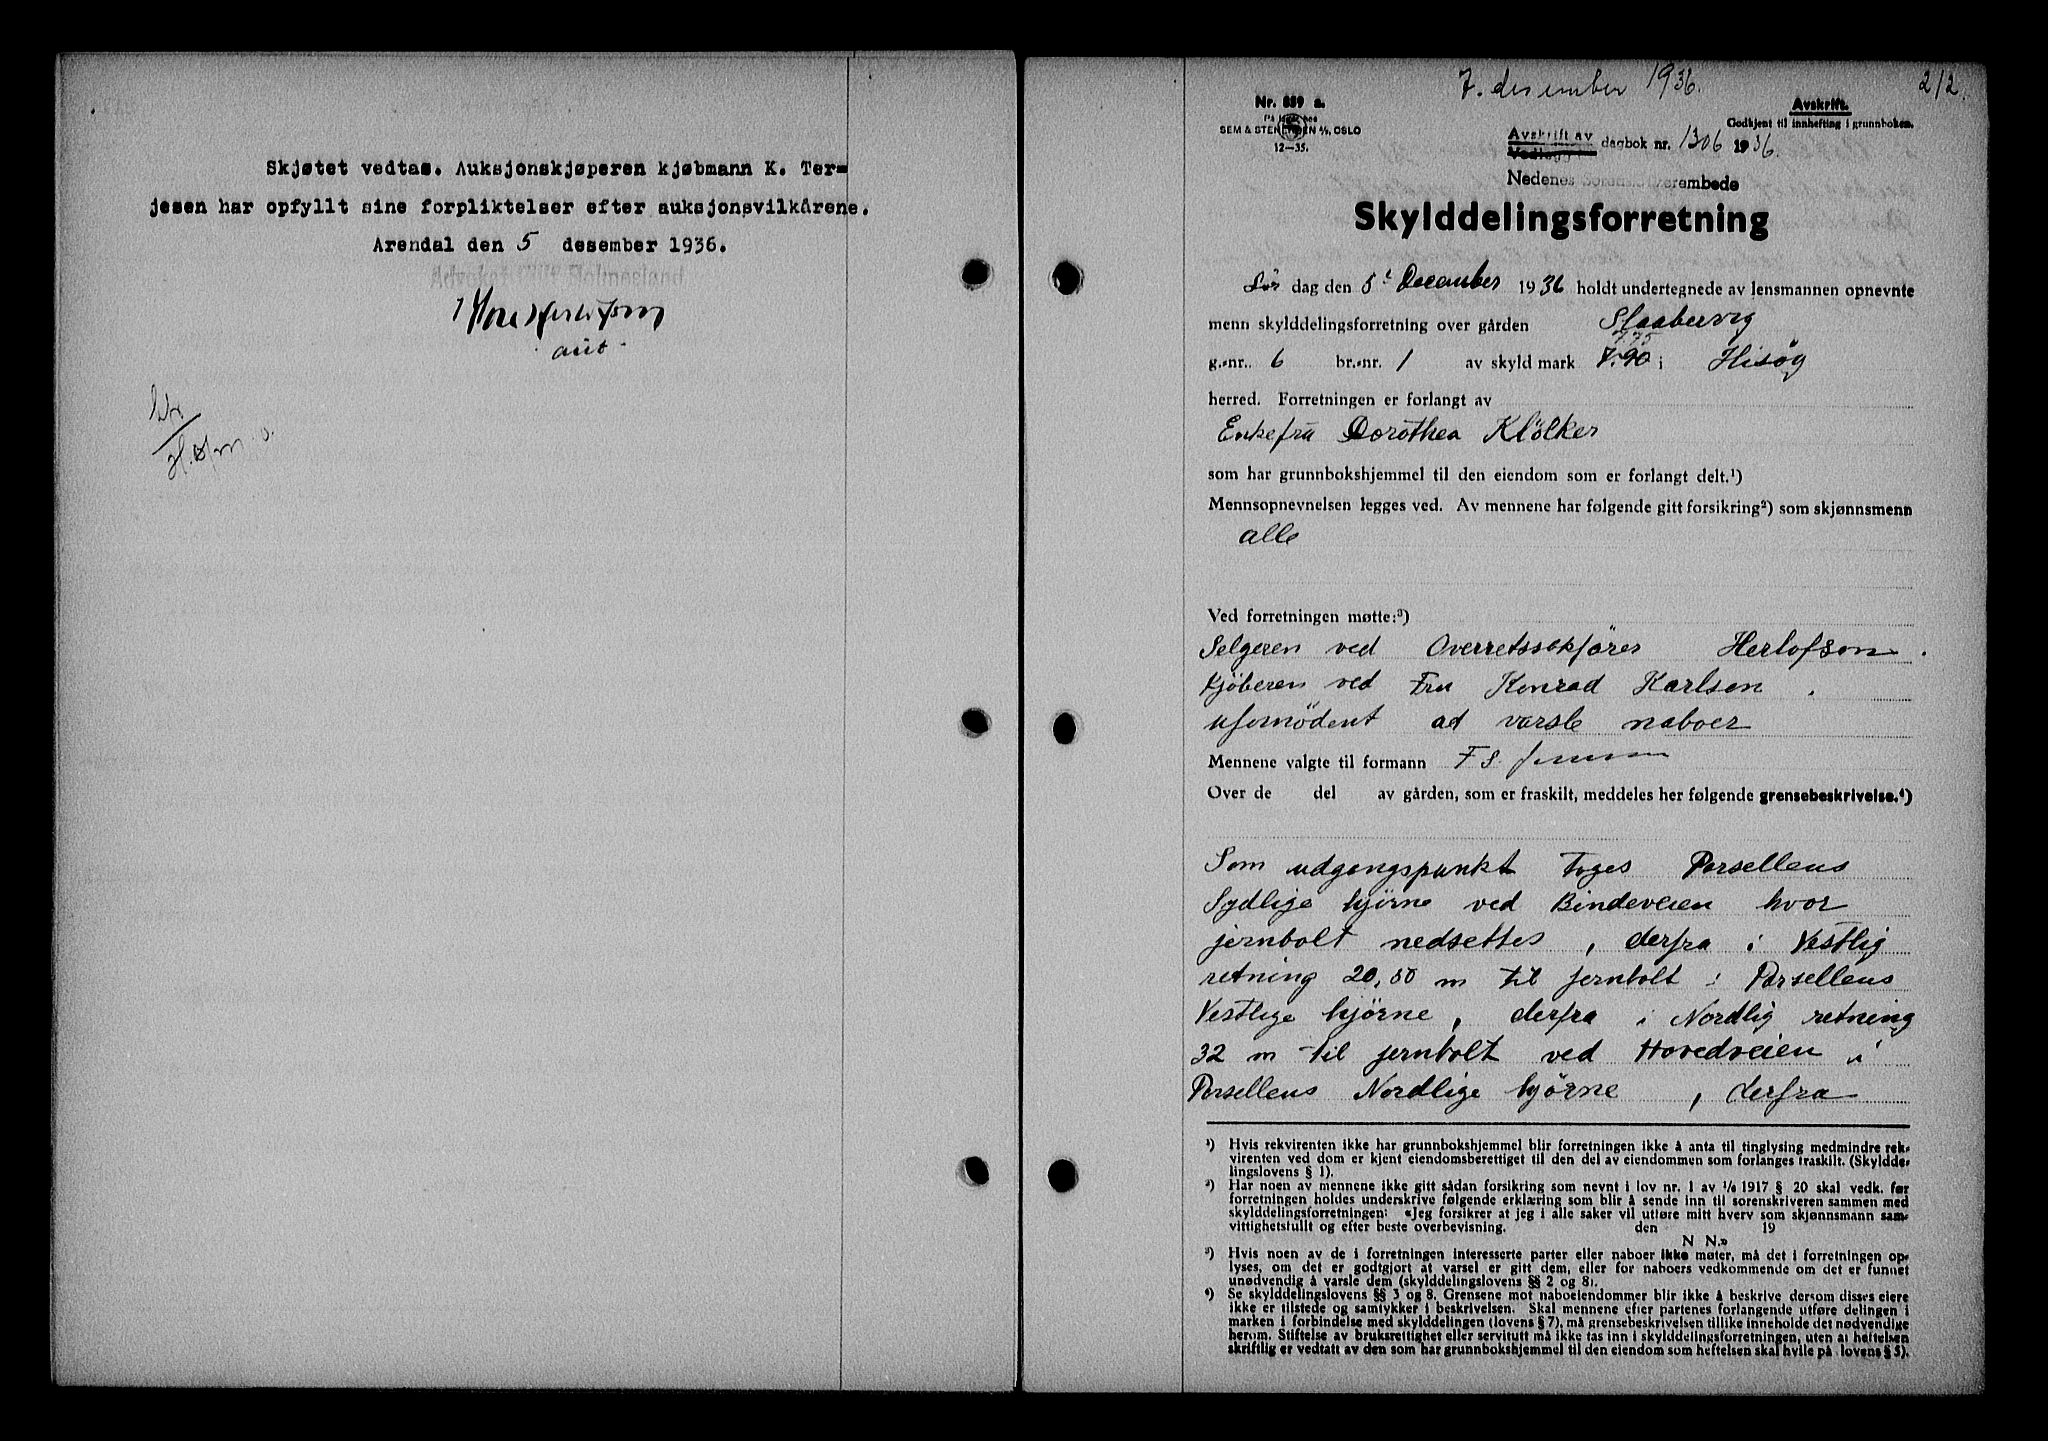 Skjøtet vedtas. Auksjonskjøperen kjøbmann K. Ter=
jesen har opfyllt sine forpliktelser efter auksjonsvilkårene.
Arendal den 5 desember 1936.
aut.
7. desember 1936.
212.
Nr. 859 a.
På lager hos
SEM & STENERSEN A/S, OSLO
12-35.
Avskrift.
Godkjent til innhefting i grunnboken.
Avskrift av
Vedlegg
dagbok nr. 1306 1936.
Nedenes Sorenskriverembede
Skylddelingsforretning
Lør dag den 5t December 1936 holdt undertegnede av lensmannen opnevnte
menn skylddelingsforretning over gården
7.75
g.-nr. 6 br.-nr. 1 av skyld mark 7.90 i Hisøy
herred. Forretningen er forlangt av
Enkefru Dorothea Kløcker
som har grunnbokshjemmel til den eiendom som er forlangt delt.¹)
Mennsopnevnelsen legges ved. Av mennene har følgende gitt forsikring²) som skjønnsmenn
alle
Ved forretningen møtte:³)
Selgeren ved Overretssakfører Herlofson.
Kjøberen ved Fru Konrad Karlsen.
ufornødent ad varsle naboer
Mennene valgte til formann F S. Jensen
Over de del av gården, som er fraskilt, meddeles her følgende grensebeskrivelse.⁴)
Som udgangspunkt toges Parsellens
Sydlige hjørne ved Bindeveien hvor
jernbolt nedsettes, derfra i Vestlig
retning 20,50 m til jernbolt i Parsellens
Vestlige hjørne, derfra i Nordlig retning
32 m til jernbolt ved Hovedveien i
Parsellens Nordlige hjørne, derfra
¹) Hvis rekvirenten ikke har grunnbokshjemmel blir forretningen ikke å anta til tinglysing medmindre rek-
virenten ved dom er kjent eiendomsberettiget til den del av eiendommen som forlanges fraskilt. (Skyldde-
lingslovens § 1).
²) Har noen av mennene ikke gitt sådan forsikring som nevnt i lov nr. 1 av 1/6 1917 § 20 skal vedk. før
forretningen holdes underskrive følgende erklæring som blir å sende inn til sorenskriveren sammen med
skylddelingsforretningen: «Jeg forsikrer at jeg i alle saker vil utføre mitt hverv som skjønnsmann sam-
vittighetsfullt og efter beste overbevisning. den 19
N N.»
³) Hvis noen av de i forretningen interesserte parter eller naboer ikke møter, må det i forretningen op-
lyses, om det er godtgjort at varsel er gitt dem, eller for naboers vedkommende om det er funnet
unødvendig å varsle dem (skylddelingslovens §§ 2 og 8).
⁴) Se skylddelingslovens §§ 3 og 8. Grensene mot naboeiendommer blir ikke å beskrive dersom disses eiere
ikke er tilstede og samtykker i beskrivelsen. Skal mennene efter partenes forlangende utføre delingen i
marken i forbindelse med skylddelingen (lovens § 7), må grensebeskrivelsen tillike inneholde det nødvendige
herom. Stiftelse av bruksrettighet eller servitutt må ikke tas inn i skylddelingsforretningen, uten at heftelsen
skriftlig er vedtatt av den som har grunnbokshjemmel til den eiendom som heftelsen skal hvile på (lovens § 5).